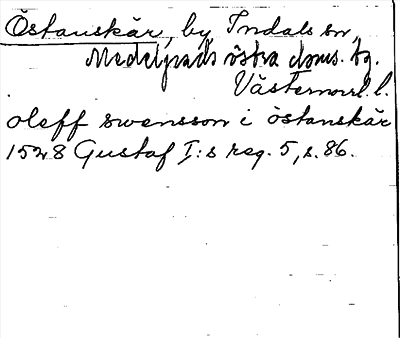 Östanskär, by, Indals sn,
Medelpads östra doms. tg.
Västernorrl. l.
oleff swensson i östanskär
1528 Gustaf I:s reg. 5, s. 86.